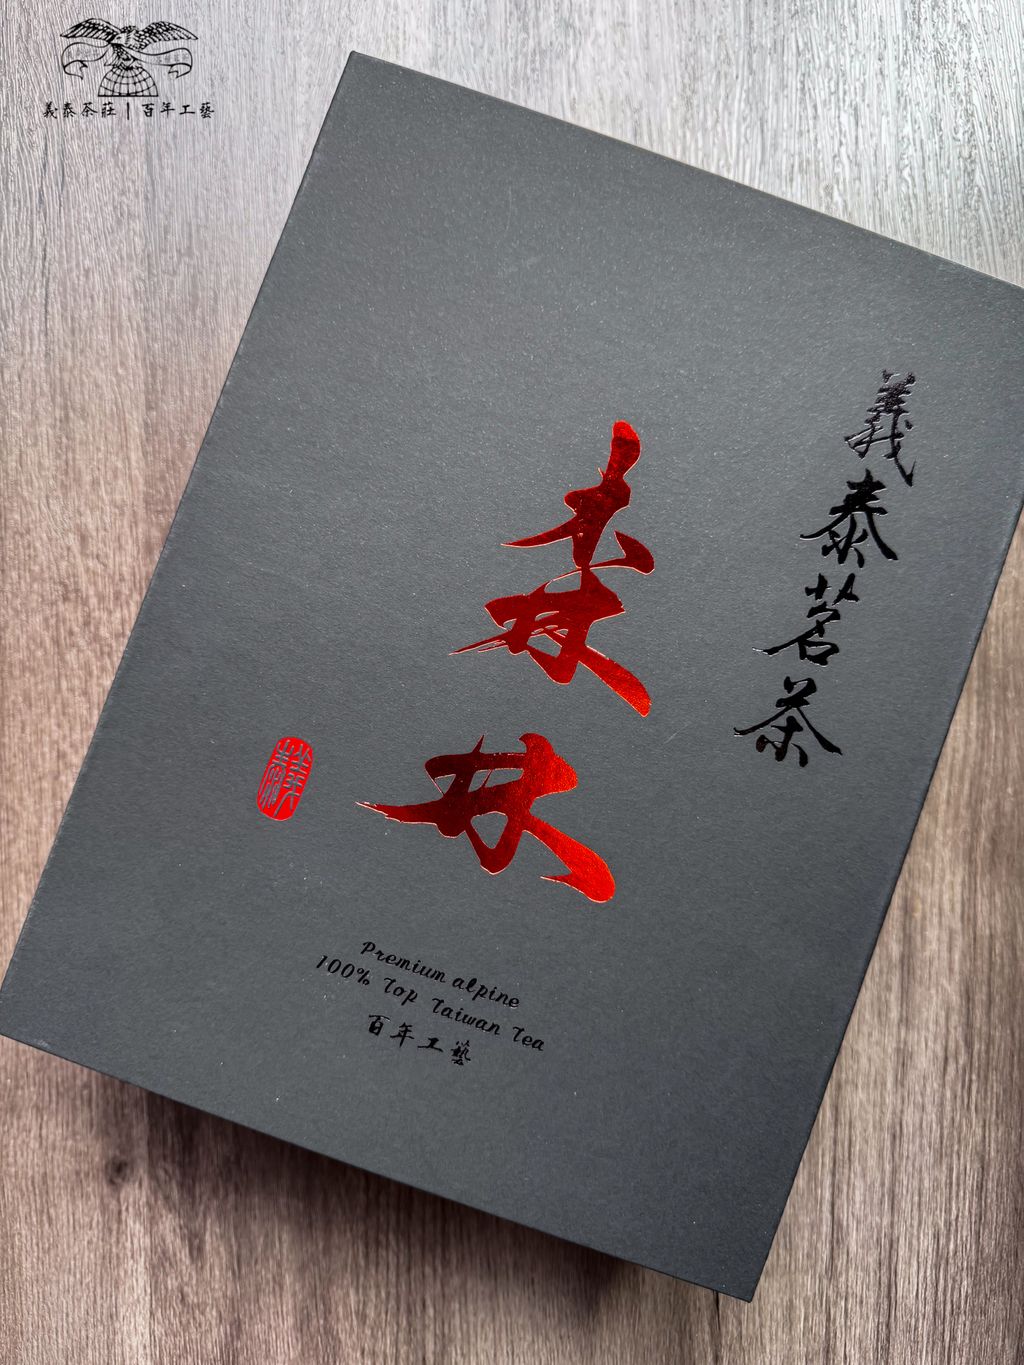 義泰茶莊 | 百年工藝
義泰茗茶
森林
Premium alpine
100% Top Taiwan Tea
百年工藝